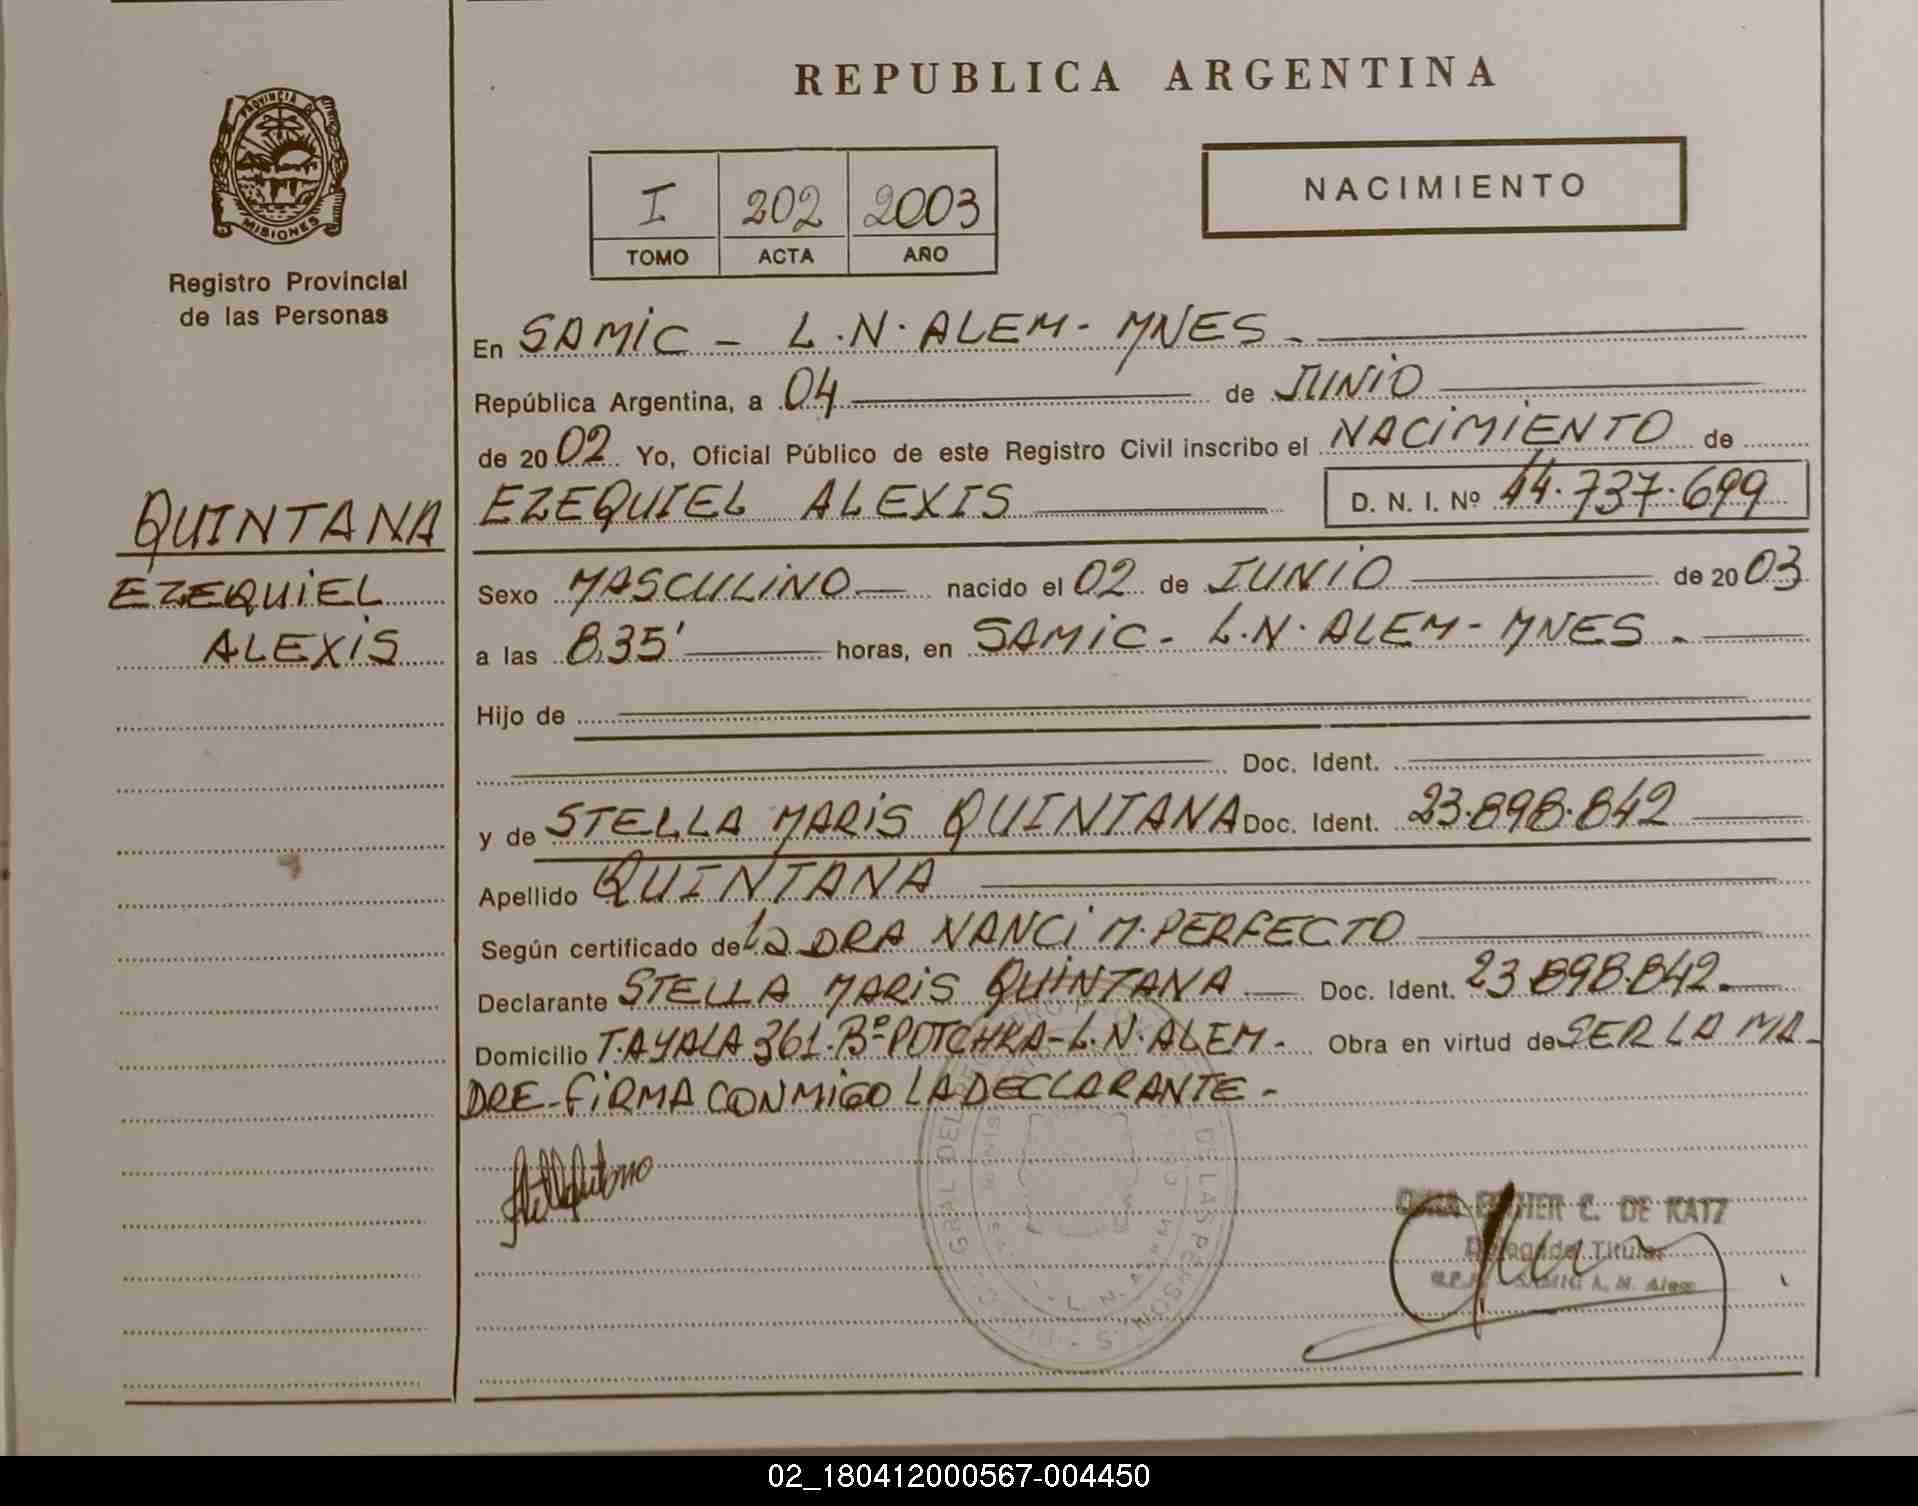 REPUBLICA ARGENTINA
PROVINCIA DE
MISIONES
Registro Provincial
de las Personas
I 202 2003
TOMO ACTA AÑO
NACIMIENTO
En SAMIC - L.N. ALEM - MNES -
República Argentina, a 04 de JUNIO
de 2002 Yo, Oficial Público de este Registro Civil inscribo el NACIMIENTO de
QUINTANA
EZEQUIEL
ALEXIS
EZEQUIEL ALEXIS D. N. I. Nº 44.737.699
Sexo MASCULINO nacido el 02 de JUNIO de 2003
a las 8,35' horas, en SAMIC - L.N. ALEM - MNES -
Hijo de
Doc. Ident.
y de STELLA MARIS QUINTANA Doc. Ident. 23.898.842
Apellido QUINTANA
Según certificado de la DRA NANCI M. PERFECTO
Declarante STELLA MARIS QUINTANA Doc. Ident. 23.898.842.
Domicilio T. AYALA 361 - Bº POTCHKA - L.N. ALEM - Obra en virtud de SER LA MA-
DRE - FIRMA CONMIGO LA DECLARANTE -
C. DE KATZ
Delegada Titular
SAMIC L. N. Alem
DE LAS PERSONAS
02_180412000567-004450